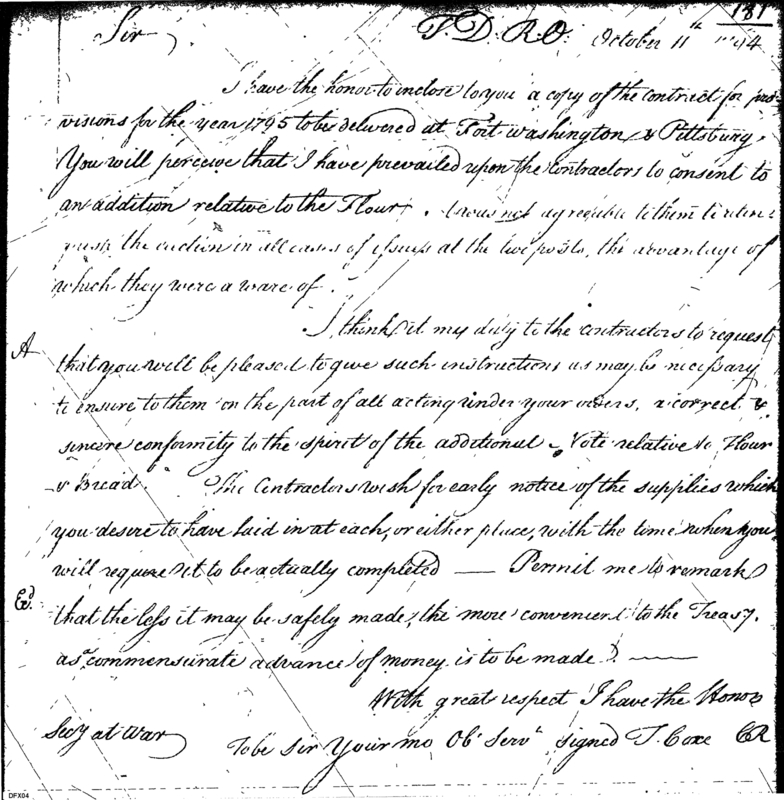 181
Sir
T. D. R. O. October 11th 1794
I have the honor to inclose to you a copy of the contract for pro-
visions for the year 1795 to be delivered at Fort Washington & Pittsburg.
You will perceive that I have prevailed upon the Contractors to consent to
an addition relative to the Flour. It was not agreeable to them to
the auction in all cases of issues at the two posts, the advantage of
which they were aware of.
I think it my duty to the contractors to request
A
that you will be pleased to give such instructions as may be necessary
to ensure to them on the part of all acting under your orders, a correct &
sincere conformity to the spirit of the additional Note relative to Flour
& Bread. The Contractors wish for early notice of the supplies which
you desire to have laid in at each, or either place, with the time when you
will require it to be actually completed — Permit me to remark
Ed.
that the less it may be safely made, the more convenient to the Treasy.
as commensurate advance of money is to be made. —
With great respect I have the Honor
Secy at War
To be Sir Your mo Obt Servt signed T. Coxe CR
DFX04